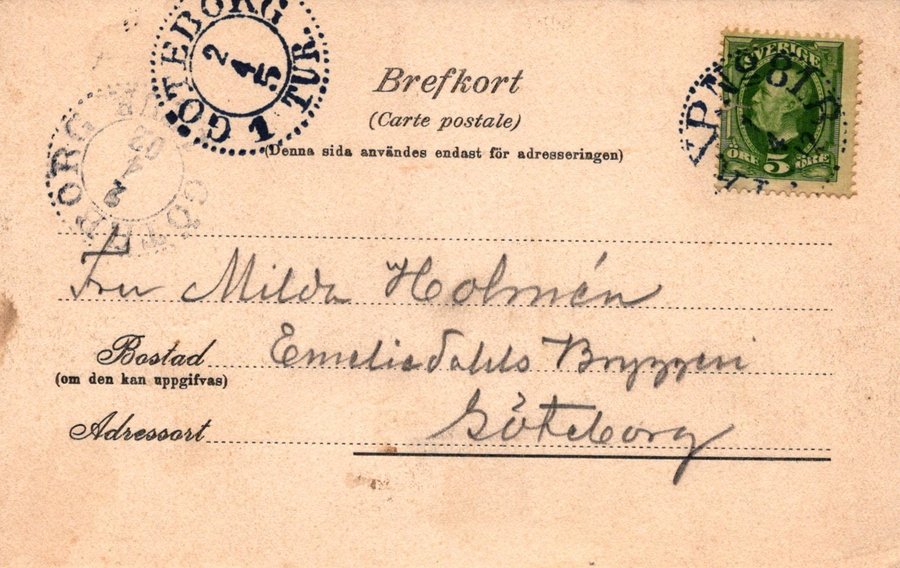 GÖTEBORG
1 TUR.
2
4
5
GÖTEBORG
2
4
02
Brefkort
(Carte postale)
(Denna sida användes endast för adresseringen)
SVERIGE
PKXP Nº 81
ÖRE 5 ÖRE
Fru Milda Holmén
Bostad Emeliedahls Bryggeri
(om den kan uppgifvas)
Adressort Göteborg